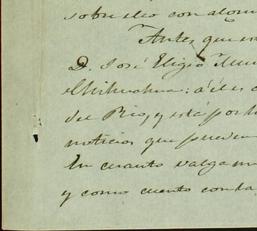 sobre eso con algun
Antes que
D. José Eligio Muñ
Chihuahua; a él es
del Rio, y está por
noticias que pueda
En cuanto valga
y como cuento con la